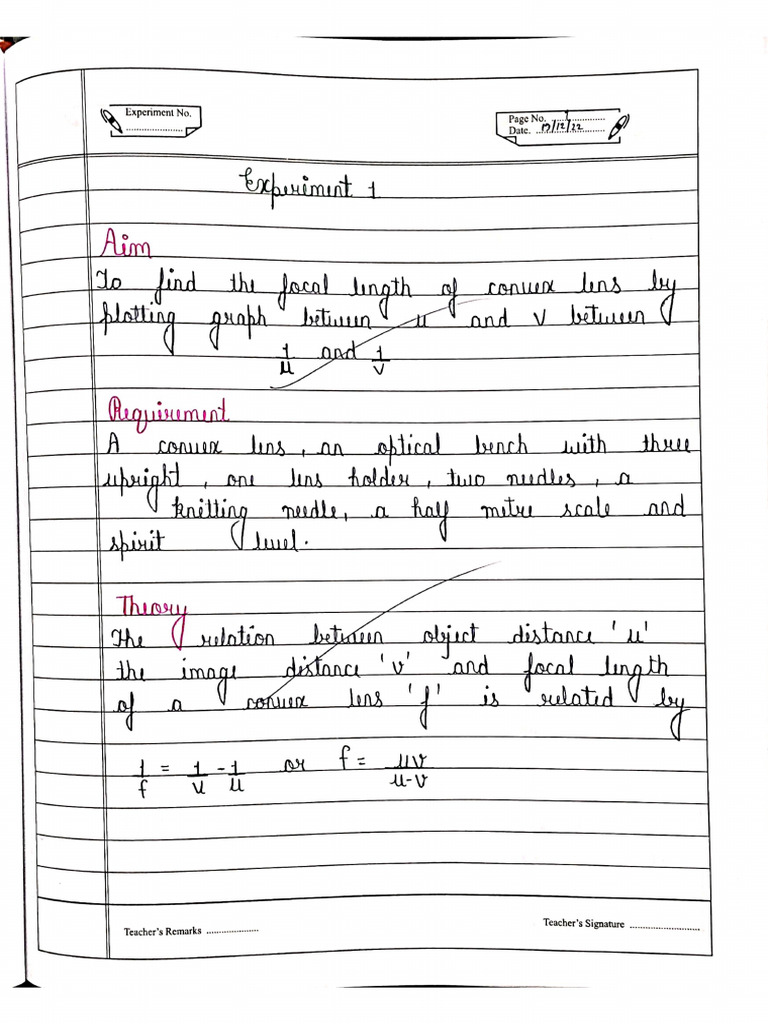 Experiment No.
Page No. 1
Date. 13/12/22
Experiment 1
Aim
To find the focal length of convex lens by
plotting graph between u and v between
1/u and 1/v
Requirement
A convex lens, an optical bench with three
upright, one lens holder, two needles, a
knitting needle, a half metre scale and
spirit level.
Theory
The relation between object distance 'u'
the image distance 'v' and focal length
of a convex lens 'f' is related by
1/f = 1/v - 1/u or f = uv/u-v
Teacher's Remarks
Teacher's Signature